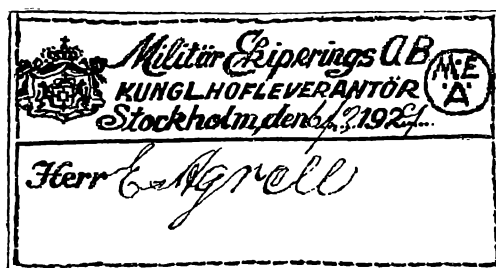 Militär Ekiperings AB
KUNGL. HOFLEVERANTÖR
M·E
·A·
Stockholm, den 192
Herr E. Agrell